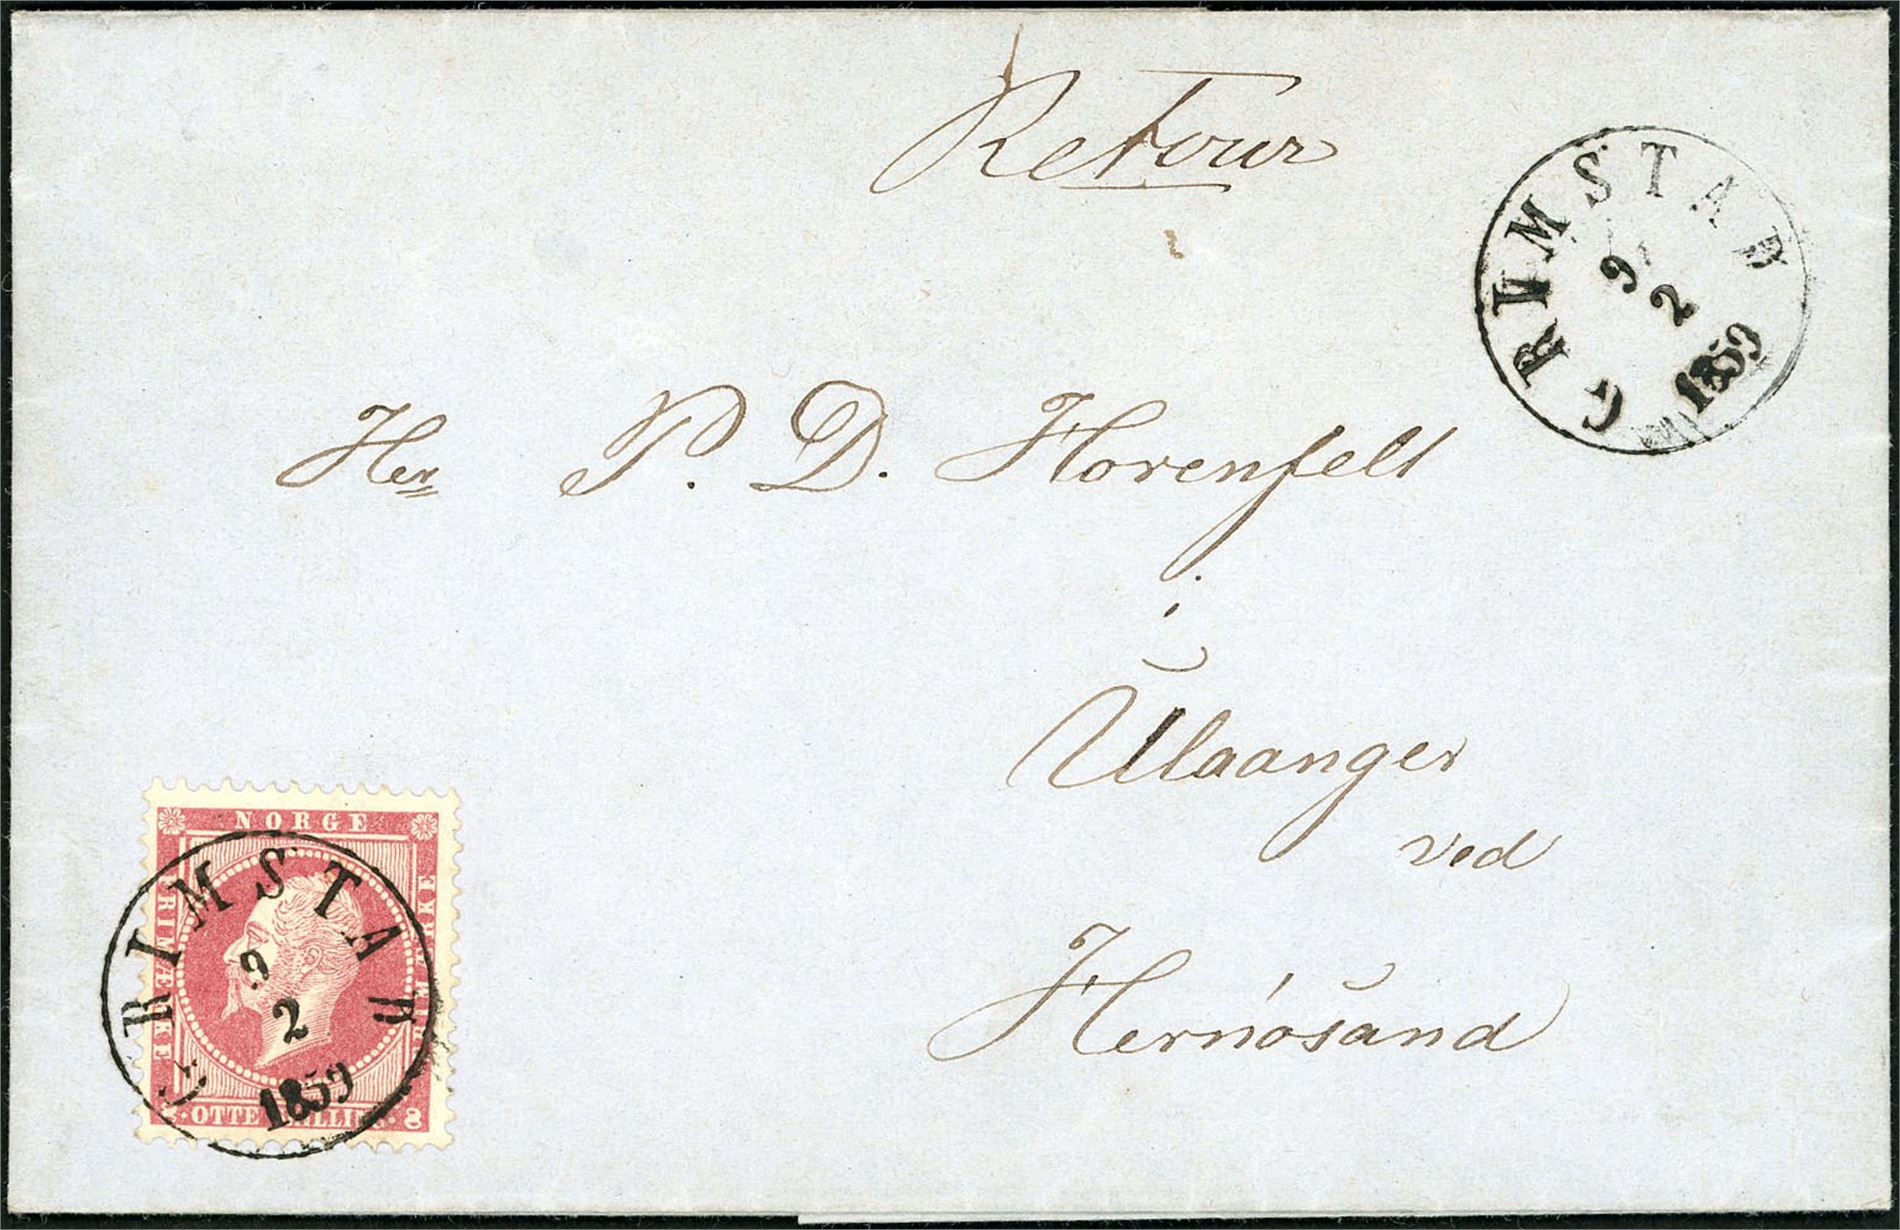 Retour
GRIMSTAD
9
2
1859
Her P. D. Horenfelt
i
Ulaanger
ved
Hernösand
NORGE
FRIMÆRKE
OTTE SKILLING. 8
GRIMSTAD
9
2
1859